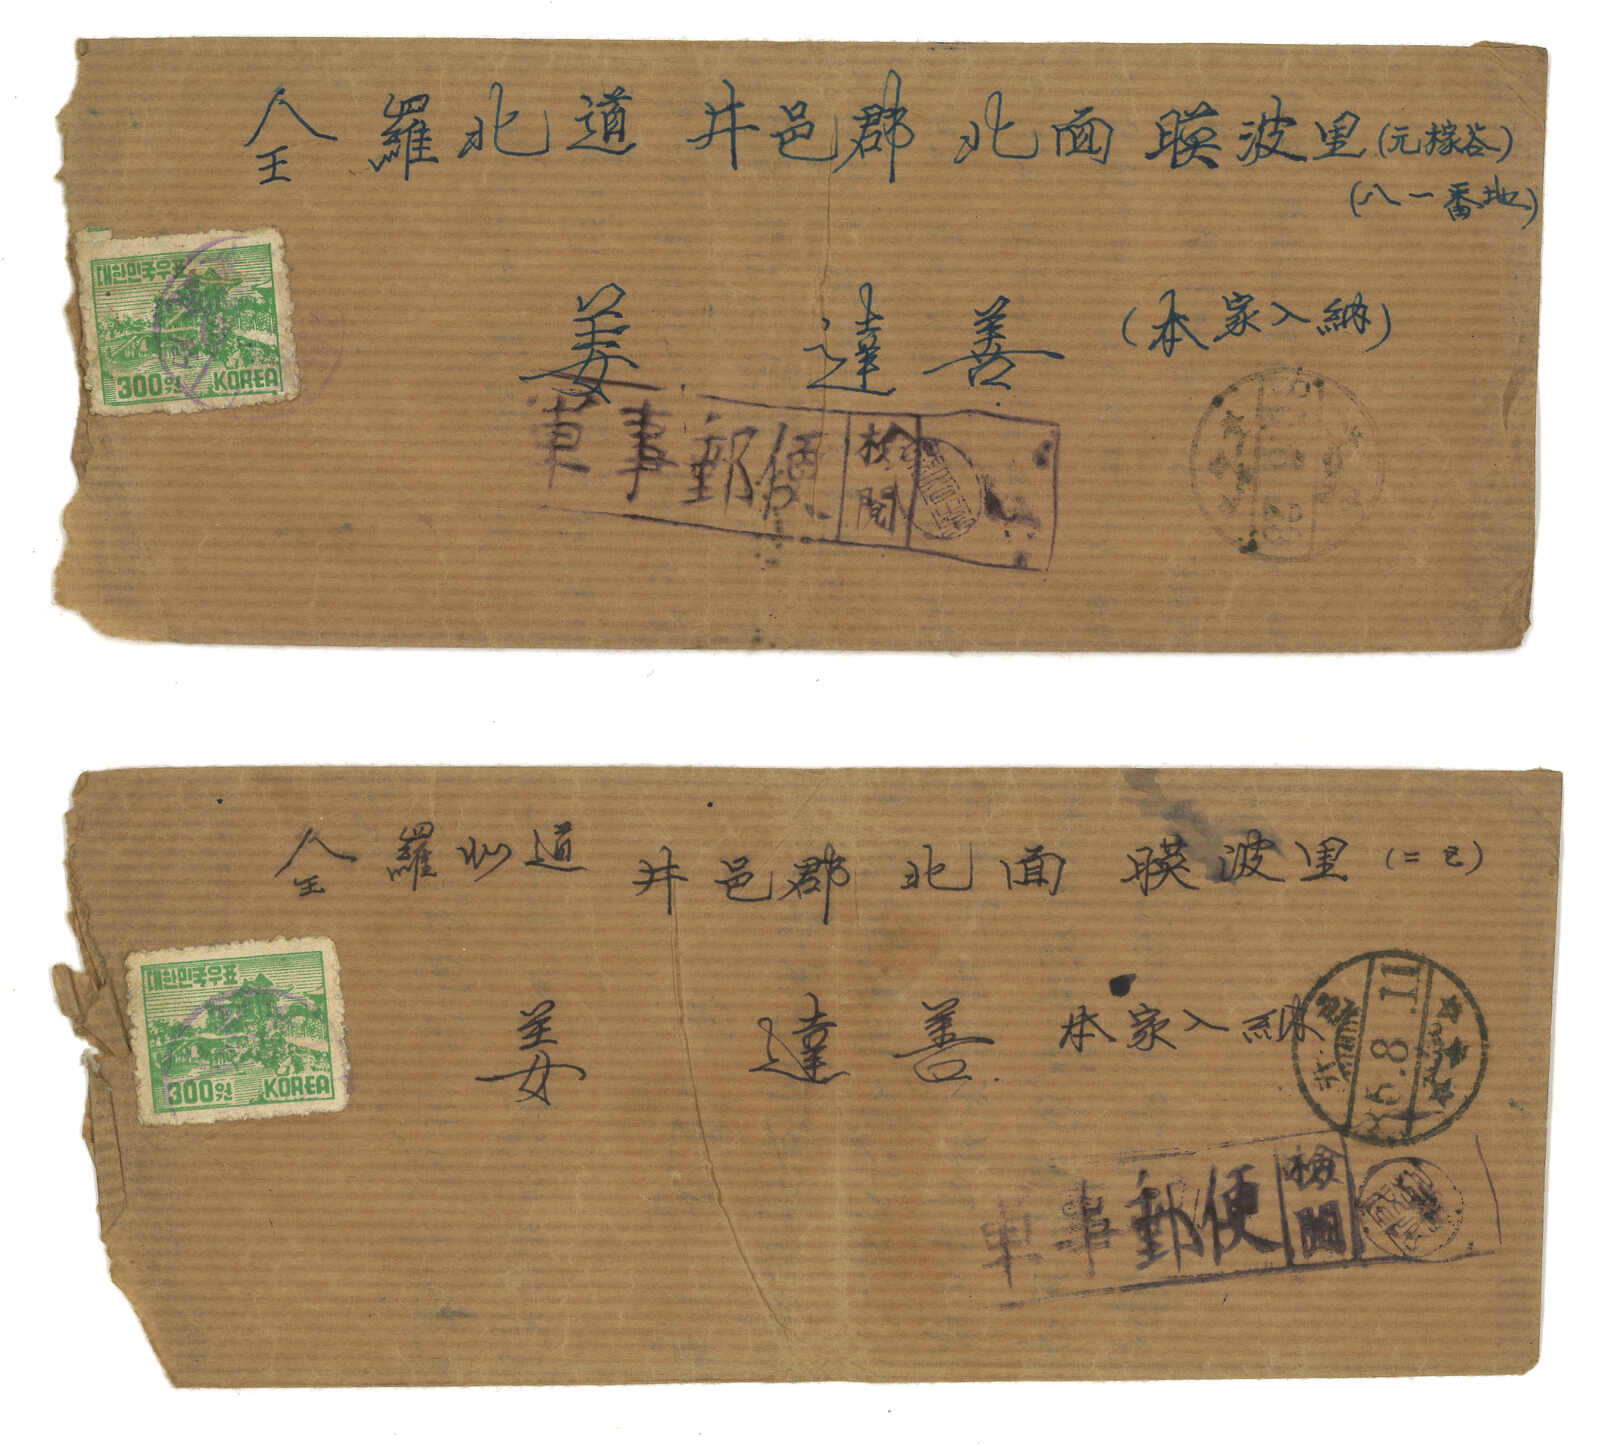 全羅北道 井邑郡 北面 暎波里 (元稼谷)
(八一番地)
대한민국우표
300원 KOREA
姜 達善 (本家入納)
軍事郵便 検閲
全羅北道 井邑郡 北面 暎波里 (二区)
대한민국우표
300원 KOREA
姜 達善 本家入納
井邑
86.8.11
軍事郵便 検閲